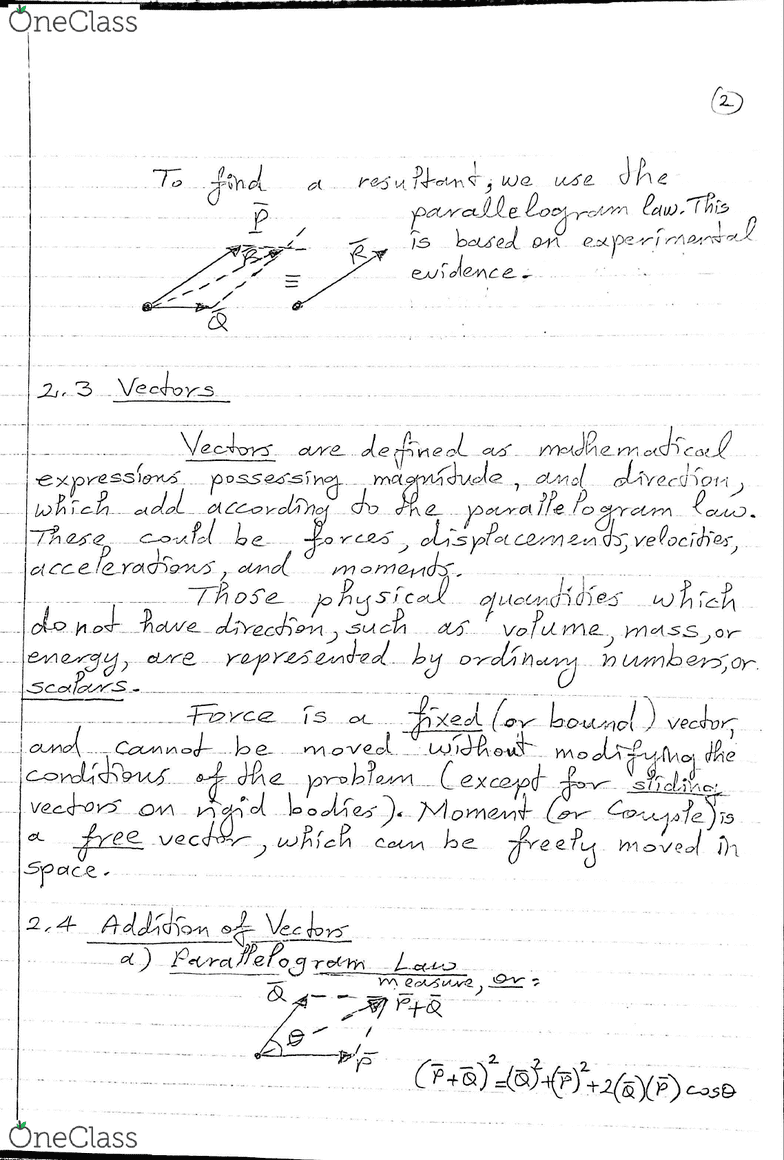 OneClass
(2)
To find a resultant, we use the
parallelogram law. This
is based on experimental
evidence.
P̄
R̄
Q̄
≡
R̄
2.3 Vectors
Vectors are defined as mathematical
expressions possessing magnitude, and direction,
which add according to the parallelogram law.
These could be forces, displacements, velocities,
accelerations, and moments.
Those physical quantities which
do not have direction, such as volume, mass, or
energy, are represented by ordinary numbers, or
scalars.
Force is a fixed (or bound) vector,
and cannot be moved without modifying the
conditions of the problem (except for sliding
vectors on rigid bodies). Moment (or Couple) is
a free vector, which can be freely moved in
space.
2.4 Addition of Vectors
a) Parallelogram Law
measure, or:
Q̄
P̄+Q̄
θ
P̄
(P̄+Q̄)²=(Q̄)²+(P̄)²+2(Q̄)(P̄) cosθ
OneClass